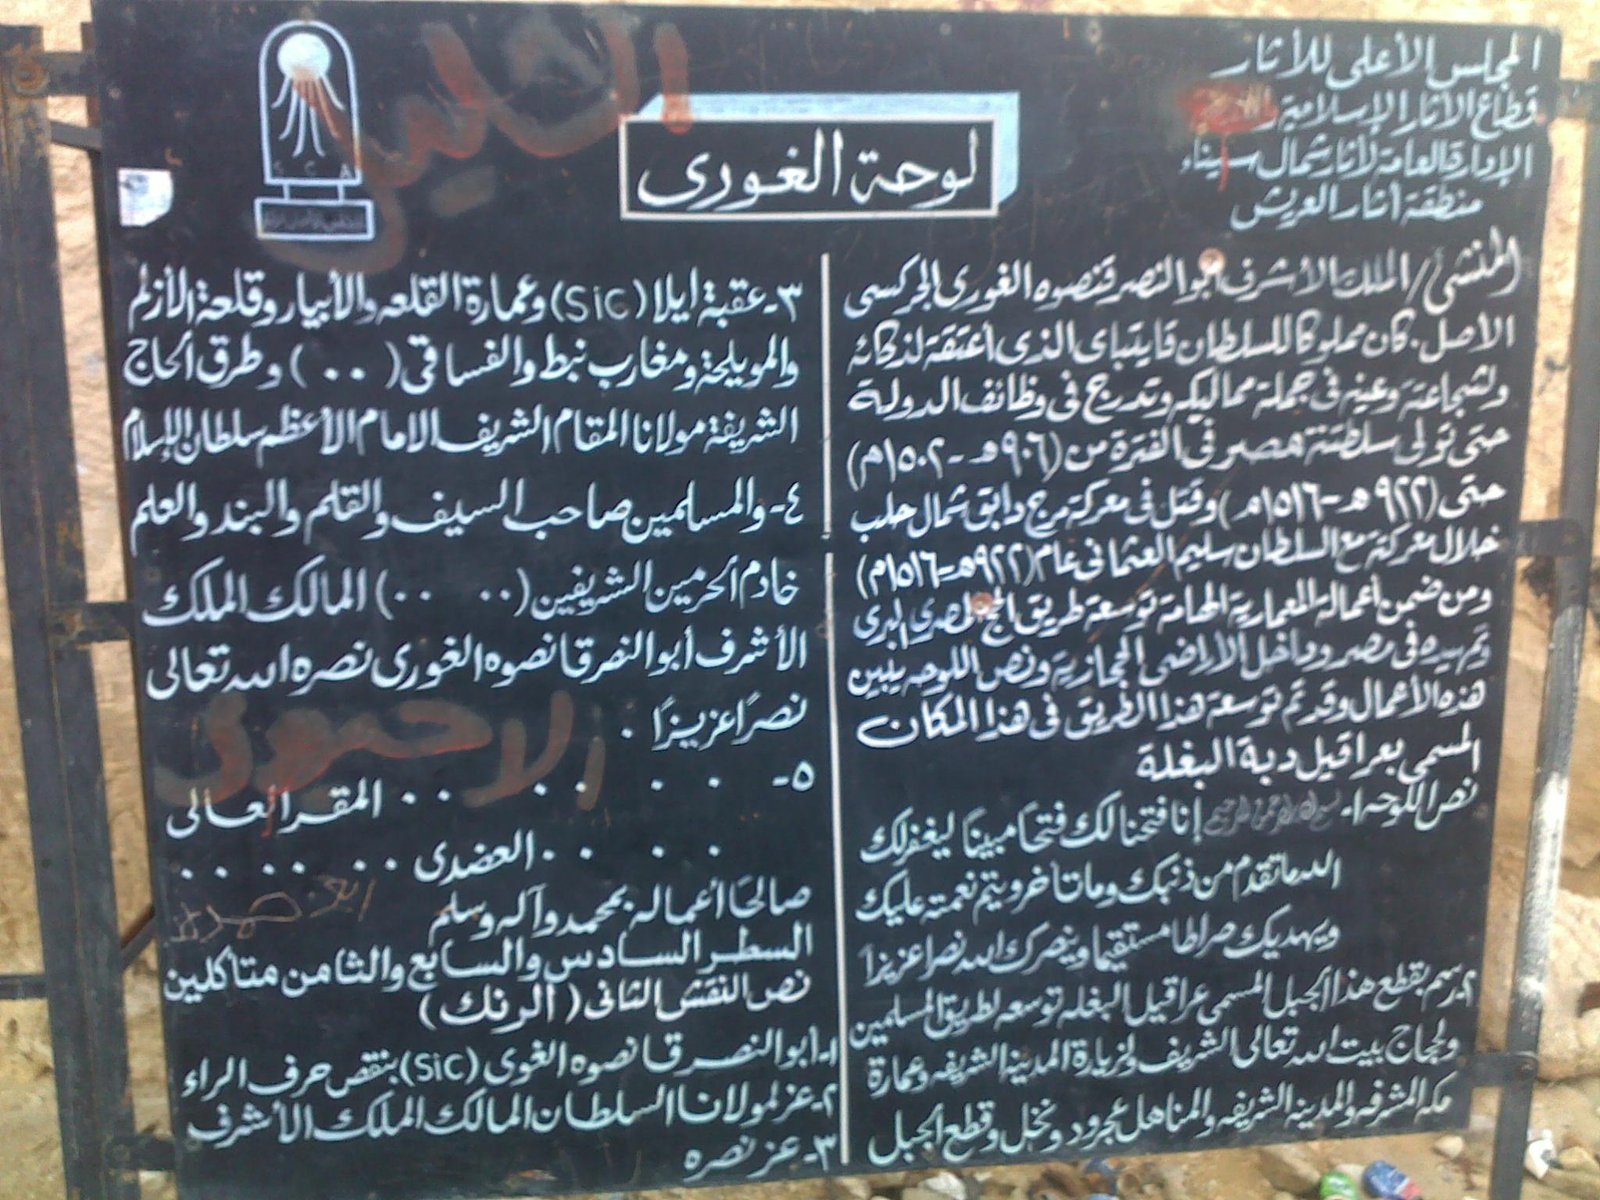 المجلس الأعلى للأثار
قطاع الأثار الإسلامية
الإدارة العامة لأثار شمال سيناء
منطقة أثار العريش
لوحة الغورى
S C A
المنشئ/ الملك الأشرف أبو النصر قنصوه الغورى الجركسى
الأصل. كان مملوكا للسلطان قايتباى الذى أعتقة لذكائه
ولشجاعتة وعينه فى جملة مماليكه وتدرج فى وظائف الدولة
حتى تولى سلطنة مصر فى الفترة من (٩٠٦هـ - ١٥٠٢م)
حتى (٩٢٢هـ - ١٥١٦م) وقتل فى معركة مرج دابق شمال حلب
خلال معركة مع السلطان سليم العثمانى عام (٩٢٢هـ - ١٥١٦م)
ومن ضمن أعمالة المعمارية الهامة توسعة طريق الحج المصرى البرى
وتمهيده فى مصر وداخل الاراضى الحجازية ونص اللوحه يبين
هذه الأعمال وقد تم توسعة هذا الطريق فى هذا المكان
المسمى بعراقيل دبة البغلة
نص اللوحه ١- بسم الله الرحمن الرحيم إنا فتحنا لك فتحا مبينا ليغفر لك
الله ما تقدم من ذنبك وما تأخر ويتم نعمته عليك
ويهديك صراطا مستقيما وينصرك الله نصرا عزيزا
٢- رسم بقطع هذا الجبل المسمى عراقيل البغله توسعه لطريق المسلمين
ولحجاج بيت الله تعالى الشريف لزيارة المدينه الشريفه وعمارة
مكه المشرفه والمدينه الشريفه والمناهل عجرود ونخل وقطع الجبل
٣- عقبة ايلا (Sic) وعمارة القلعه والأبيار وقلعة الأزلم
والمويلحة ومغارب نبط والفساقى (٠٠) وطرق الحاج
الشريفة مولانا المقام الشريف الامام الأعظم سلطان الإسلام
٤- والمسلمين صاحب السيف والقلم والبند والعلم
خادم الحرمين الشريفين (٠٠ ٠٠) المالك الملك
الأشرف أبو النصر قانصوه الغورى نصره الله تعالى
نصرًا عزيزًا .
٥- . . . . . . المقر العالى
. . . . . العضدى . . . . . .
صالحَا أعماله بمحمد وآله وسلم
السطر السادس والسابع والثامن متأكلين
نص النقش الثانى (الرنك)
١- أبو النصر قانصوه الغوى (Sic) بنقص حرف الراء
٢- عز لمولانا السلطان المالك الملك الأشرف
٣- عز نصره